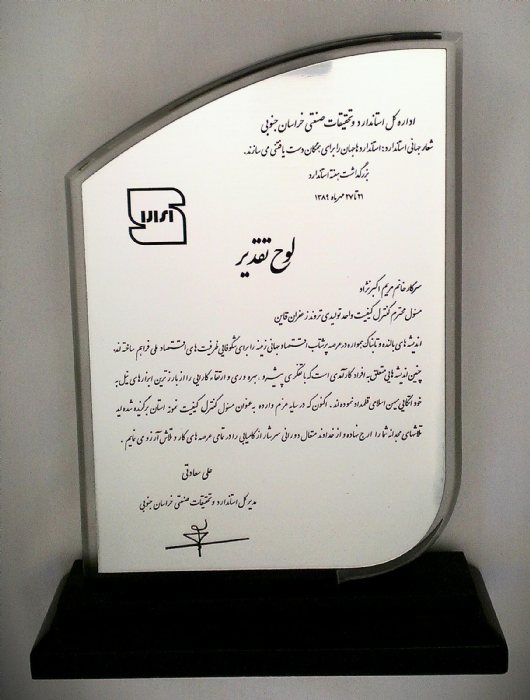 اداره کل استاندارد و تحقیقات صنعتی خراسان جنوبی
شعار جهانی استاندارد: استانداردها جهان را برای همگان دست یافتنی می سازند.
بزرگداشت هفته استاندارد
۲۱ تا ۲۷ مهرماه ۱۳۸۹
لوح تقدیر
سرکار خانم مریم اکبرنژاد
مسئول محترم کنترل کیفیت واحد تولیدی تروند زعفران قاین
اندیشه های بالنده و تابناک همواره در عرصه پرشتاب اقتصاد جهانی زمینه را برای شکوفایی ظرفیت های اقتصاد ملی فراهم ساخته اند
چنین اندیشه هایی متعلق به افراد کارآمدی است که با تفکری پیشرو، بهره وری و ارتقاء کارایی را از بارزترین ابزارهای نیل به
خود اتکایی میهن اسلامی قلمداد نموده اند. اکنون که در سایه عزم و اراده به عنوان مسئول کنترل کیفیت نمونه استان برگزیده شده اید
تلاشهای مجدانه شما را ارج نهاده و از خداوند متعال دورانی سرشار از کامیابی را در تمامی عرصه های کار و تلاش آرزو می نمایم.
علی سعادتی
مدیر کل استاندارد و تحقیقات صنعتی خراسان جنوبی